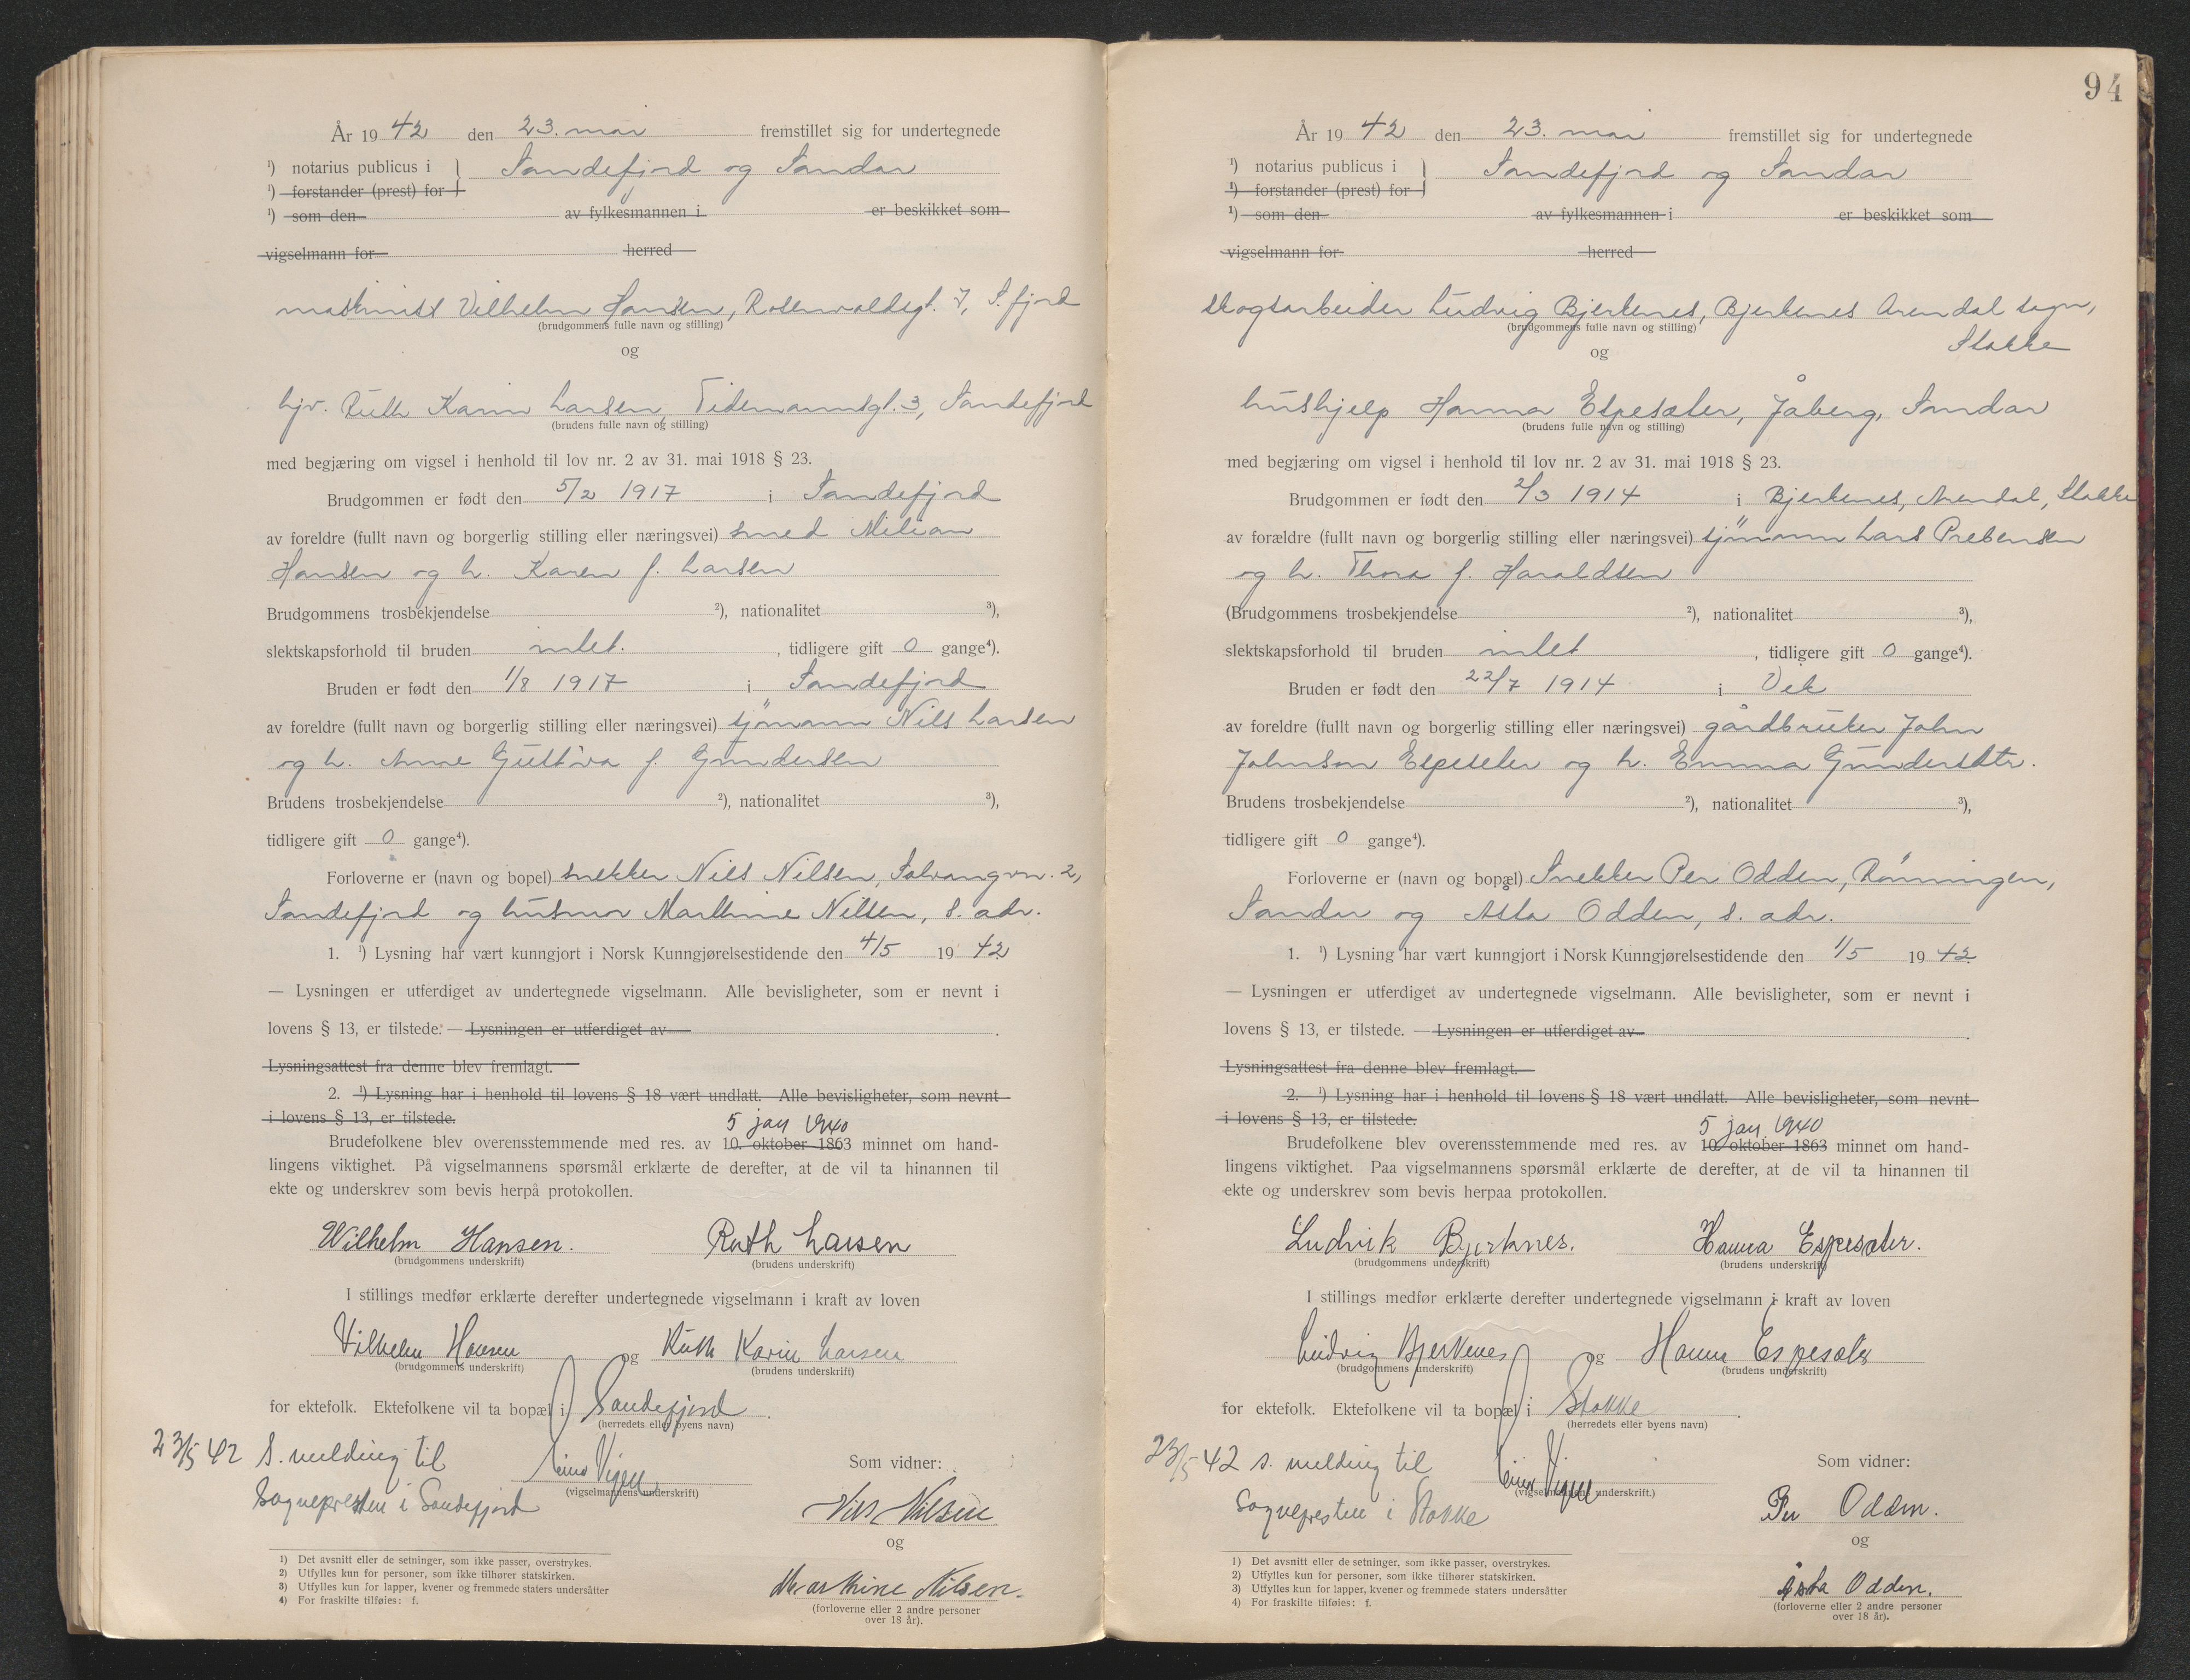 År 19 42 den 23. mai fremstillet sig for undertegnede
¹) notarius publicus i } Sandefjord og Sandar
¹) forstander (prest) for
¹) som den av fylkesmannen i er beskikket som
vigselmann for herred
maskinist Vilhelm Hansen, Rosenvoldsgt. 7, S.fjord
(brudgommens fulle navn og stilling)
og
hjv. Ruth Karin Larsen, Tidemannsgt. 3, Sandefjord
(brudens fulle navn og stilling)
med begjæring om vigsel i henhold til lov nr. 2 av 31. mai 1918 § 23.
Brudgommen er født den 5/2 1917 i Sandefjord
av foreldre (fullt navn og borgerlig stilling eller næringsvei) smed Milian
Hansen og h. Karen f. Larsen
Brudgommens trosbekjendelse ²), nationalitet ³),
slektskapsforhold til bruden intet. , tidligere gift 0 gange⁴).
Bruden er født den 1/8 1917 i Sandefjord
av foreldre (fullt navn og borgerlig stilling eller næringsvei) sjömann Nils Larsen
og h. Anne f. Gundersen
Brudens trosbekjendelse ²), nationalitet ³),
tidligere gift 0 gange⁴).
Forloverne er (navn og bopel) snekker Nils Nilsen, Solvangvn. 2,
Sandefjord og husmor Marthine Nilsen, s. adr.
1. ¹) Lysning har vært kunngjort i Norsk Kunngjørelsestidende den 4/5 19 42
— Lysningen er utferdiget av undertegnede vigselmann. Alle bevisligheter, som er nevnt i
lovens § 13, er tilstede. — Lysningen er utferdiget av .
Lysningsattest fra denne blev fremlagt.
2. ¹) Lysning har i henhold til lovens § 18 vært undlatt. Alle bevisligheter, som nevnt
i lovens § 13, er tilstede.
5 jan 1940
Brudefolkene blev overensstemmende med res. av 10. oktober 1863 minnet om hand-
lingens viktighet. På vigselmannens spørsmål erklærte de derefter, at de vil ta hinannen til
ekte og underskrev som bevis herpå protokollen.
Wilhelm Hansen. Ruth Larsen
(brudgommens underskrift) (brudens underskrift)
I stillings medfør erklærte derefter undertegnede vigselmann i kraft av loven
Vilhelm Hansen og Ruth Karin Larsen
(brudgommens underskrift) (brudens underskrift)
for ektefolk. Ektefolkene vil ta bopæl i Sandefjord .
(herredets eller byens navn)
23/5 42 s. melding til
sognepresten i Sandefjord
Vigell
(vigselmannens underskrift)
Som vidner:
Nils Nilsen
og
Marthine Nilsen.
(forloverne eller 2 andre personer
over 18 år).
1) Det avsnitt eller de setninger, som ikke passer, overstrykes.
2) Utfylles kun for personer, som ikke tilhører statskirken.
3) Utfylles kun for lapper, kvener og fremmede staters undersåtter
4) For fraskilte tilføies: f.
94
År 19 42 den 23. mai fremstillet sig for undertegnede
¹) notarius publicus i } Sandefjord og Sandar
¹) forstander (prest) for
¹) som den av fylkesmannen i er beskikket som
vigselmann for herred
skogsarbeider Ludvig Bjerkenes, Bjerkenes Arendal sogn,
Stokke
(brudgommens fulle navn og stilling)
og
hushjelp Hanna Espesæter, Jåberg, Sandar
(brudens fulle navn og stilling)
med begjæring om vigsel i henhold til lov nr. 2 av 31. mai 1918 § 23.
Brudgommen er født den 2/3 1914 i Bjerkenes, Arendal, Stokke
av forældre (fullt navn og borgerlig stilling eller næringsvei) sjömann Lars Prebensen
og h. Thora f. Haraldsen
(Brudgommens trosbekjendelse ²), nationalitet ³),
slektskapsforhold til bruden intet , tidligere gift 0 gange⁴).
Bruden er født den 22/7 1914 i Vik
av foreldre (fullt navn og borgerlig stilling eller næringsvei) gårdbruker John
Johnson Espeseter og h. Emma Gundersdtr.
Brudens trosbekjendelse ²), nationalitet ³),
tidligere gift 0 gange⁴).
Forloverne er (navn og bopæl) Snekker Per Odden, Rönningen,
Sandar og Asta Odden, s. adr.
1. ¹) Lysning har vært kunngjort i Norsk Kunngjørelsestidende den 1/5 19 42
— Lysningen er utferdiget av undertegnede vigselmann. Alle bevisligheter, som er nevnt i
lovens § 13, er tilstede. — Lysningen er utferdiget av .
Lysningsattest fra denne blev fremlagt.
2. ¹) Lysning har i henhold til lovens § 18 vært undlatt. Alle bevisligheter, som nevnt
i lovens § 13, er tilstede.
5 jan 1940
Brudefolkene blev overensstemmende med res. av 10 oktober 1863 minnet om hand-
lingens viktighet. Paa vigselmannens spørsmål erklærte de derefter, at de vil ta hinannen til
ekte og underskrev som bevis herpaa protokollen.
Ludvik Bjerknes. Hanna Espesæter.
(brudgommens underskrift) (brudens underskrift)
I stillings medfør erklærte derefter undertegnede vigselmann i kraft av loven
Ludvig Bjerkenes og Hanna Espesæter
(brudgommens underskrift) (brudens underskrift)
for ektefolk. Ektefolkene vil ta bopæl i Stokke .
(herredets eller byens navn)
23/5 42 s. melding til
Sognepresten i Stokke
Vigell
(vigselmannens underskrift.)
Som vidner:
Per Odden.
og
Asta Odden.
(forloverne eller 2 andre personer
over 18 år).
1) Det avsnitt eller de setninger, som ikke passer, overstrykes.
2) Utfylles kun for personer, som ikke tilhører statskirken.
3) Utfylles kun for lapper, kvener og fremmede staters undersåtter
4) For fraskilte tilføies: f.